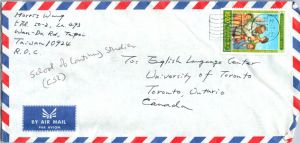 Harris Wang
Wan-Da Rd, Taipei
Taiwan 10924
R.O.C.
School of Continuing Studies
(CSI)
To: English Language Center
University of Toronto
Toronto, Ontario
Canada
BY AIR MAIL
PAR AVION